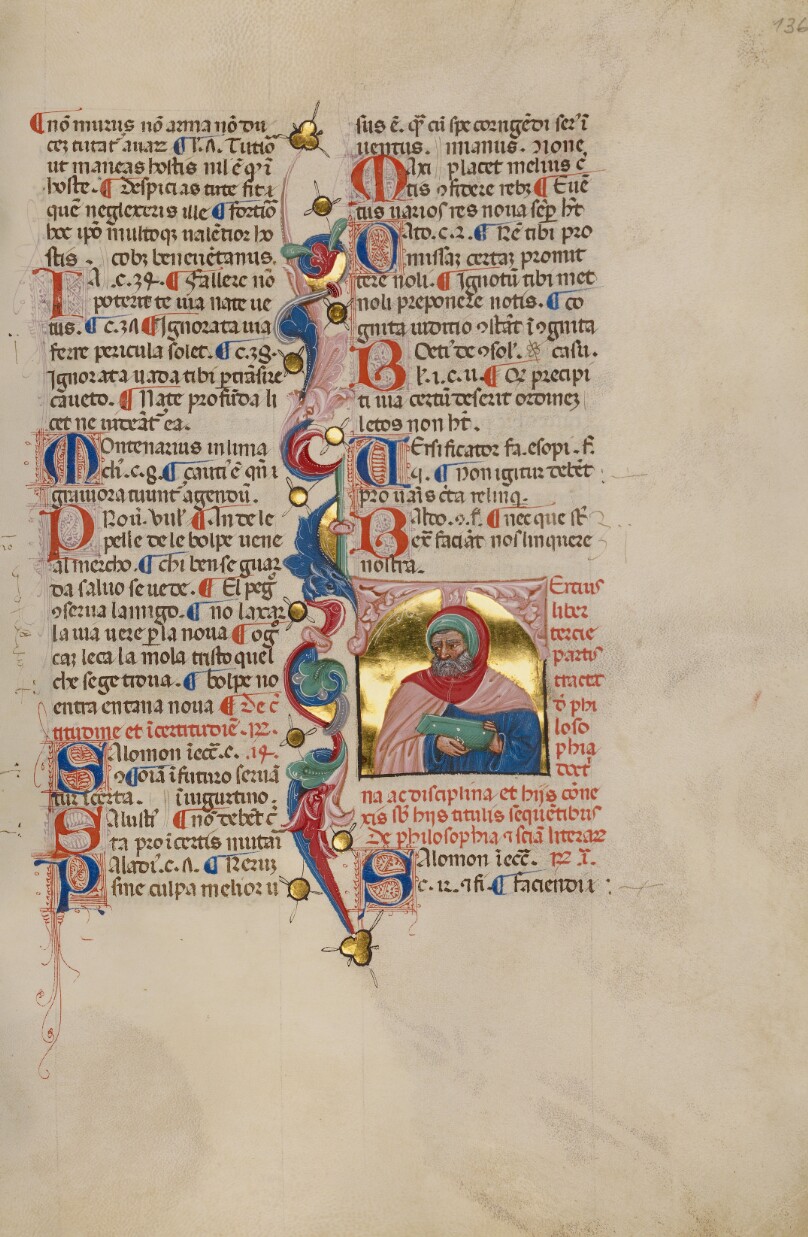 136
¶ nō murus nō arma nō du
ces tutāt
ut maneas hostis nil ē
hoste. ¶ Despicias
quē neglexeris ille ¶ fortio
hoc ipō multoqz ualētior ho
stis. cobz beneuētanus.
IA .c.34. ¶ Fallere nō
poterit te uia nate ue
tus. ¶ c.3 ¶ Ignorata uia
ferre pericula solet. ¶ c.38.
Ignorata uada tibi
caueto. ¶ Nate profūda li
cet ne ītreāt ea.
Montenarius in lima
.c.8. ¶ cauti ē qn̄
grauiora tīunt agendū.
Prou. uul ¶ In de le
pelle de le bolpe uene
al mercho. ¶ chi ben se guar
da saluo se uede. ¶ El peg
ꝯserua lamigo. ¶ no laxar
la uia uere p la noua ¶ og
caz leca la mola tristo quel
che se ge troua. ¶ bolpe no
entra en tana noua ¶ De c̄
titudine et īcertitudīe. 12.
Salomon ī ecc̄. c. 14.
ī futuro seruā
tur īcerta. ī iugurtino.
Salusti ¶ nō debēt c̄
ta pro īcertis mutari
Paladi .c. ¶
sine culpa melior u
sus ē. qn̄ cū spe corrigēdi ser ī
uentus. mianus. none
Maxi placet melius ē
tis ꝯfidere rebz ¶ Euē
tus uarios res noua sēp ht
Cato .c.2. ¶ Rē tibi pro
missaz certaz promit
tere noli. ¶ Ignotū tibi met
noli preponere notis. ¶ co
gnita iuditio ꝯstāt ī ꝯgnita
Boeti de ꝯsol. casu.
l.1.c.u. ¶ Qz precipi
ti uia certū deserit ordinez
letos non ht.
Uersificator fa. esopi. f.
¶ Non igitur debēt
pro uāis c̄ta relinq.
Baldo. ꝯ. f. ¶ nec que st̄
cer̄ faciāt nos linquere
nostra.
Tertius
liber
tercie
partis
tractat
d phi
loso
phia
doct
na ac disciplina et hijs cōne
xis sb hijs titulis sequētibus
De philosophia ꝛ sciā literaz
Salomon ī ecc̄. 12
c. 12. ꝛ fi. ¶ faciendi